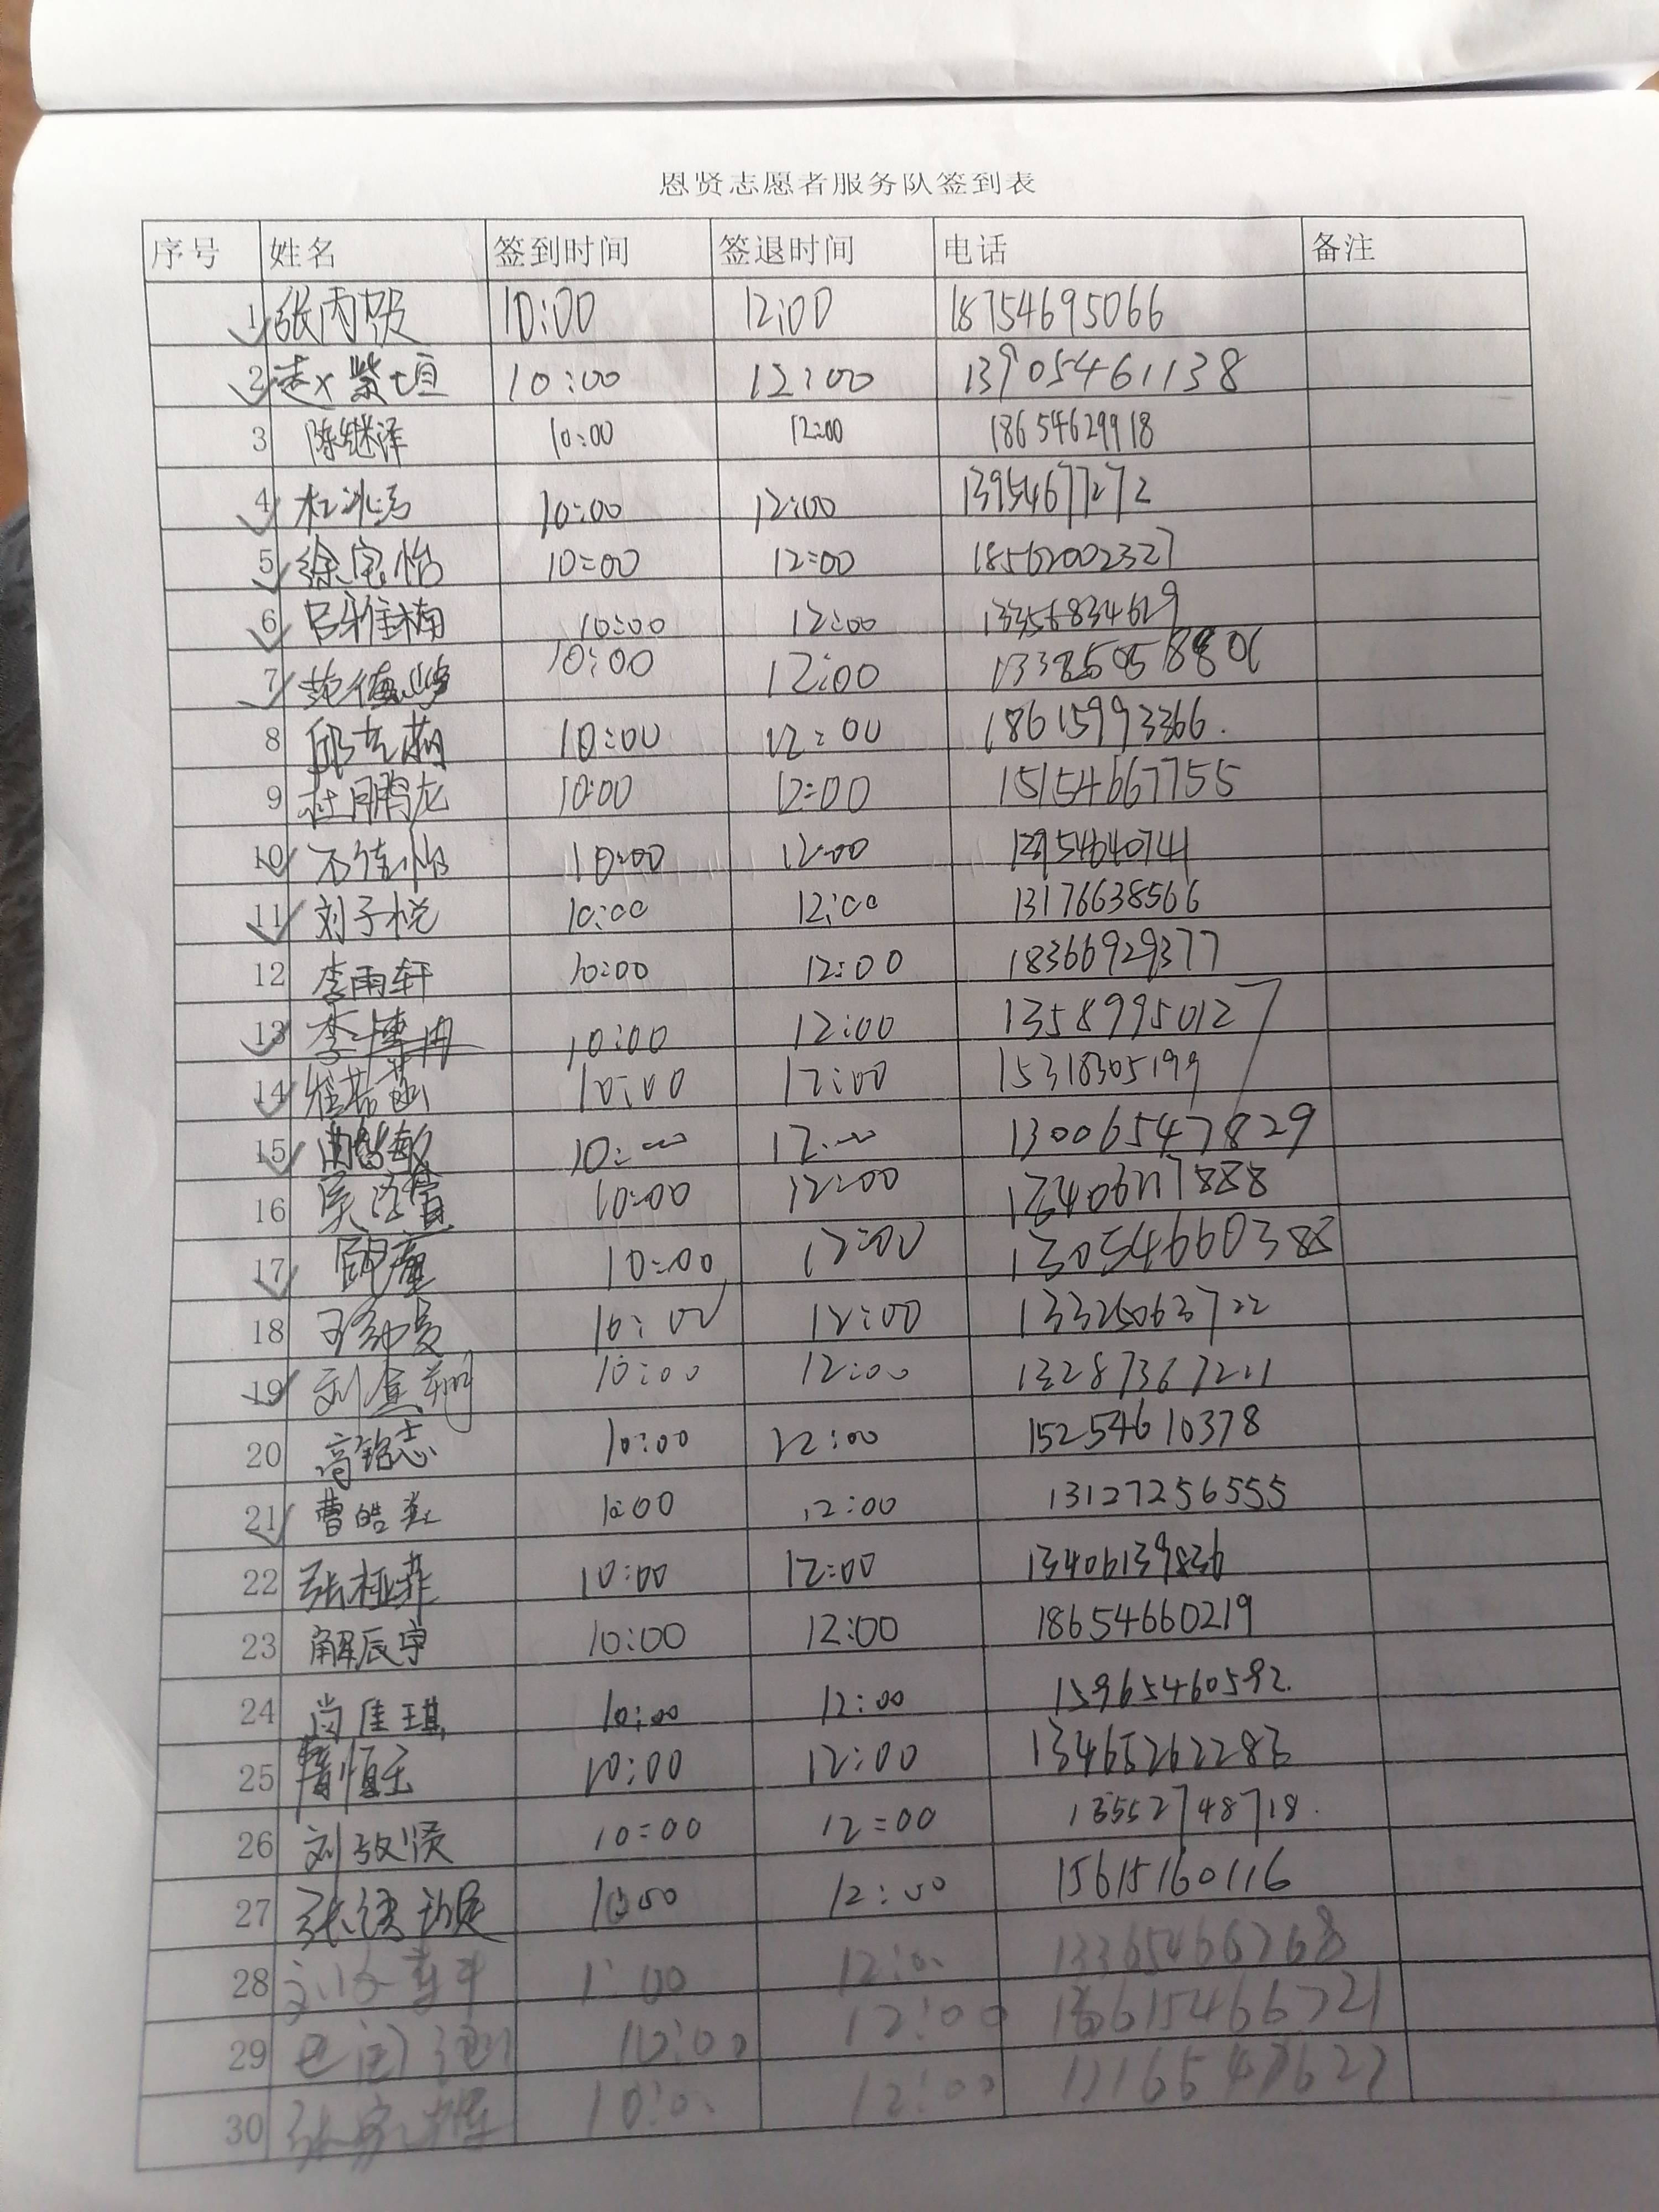 恩贤志愿者服务队签到表
序号 姓名 签到时间 签退时间 电话 备注
1 张 10:00 12:00 18754695066
2 赵紫垣 10:00 12:00 13905461138
3 陈继泽 10:00 12:00 18654629918
4 杜 10:00 12:00 13954677272
5 徐宝怡 10:00 12:00 18562002327
6 吕雅楠 10:00 12:00 13356834629
7 10:00 12:00
8 邱 10:00 12:00 18615993366.
9 杜鹏龙 10:00 12:00 15154667755
10 10:00 12:00
11 刘子悦 10:00 12:00 13176638566
12 李雨轩 10:00 12:00 18366929377
13 李博冉 10:00 12:00 13589950127
14 崔若菡 10:00 12:00 15318305199
15 曲智敏 10:00 12:00 13006547829
16 吴 10:00 12:00
17 10:00 12:00
18 10:00 12:00
19 刘 10:00 12:00 13287367211
20 高铭志 10:00 12:00 15254610378
21 曹皓 10:00 12:00 13127256555
22 张桠菲 10:00 12:00 13406139836
23 解辰宇 10:00 12:00 18654660219
24 尚佳琪 10:00 12:00 15965460592.
25 10:00 12:00 13465262283
26 刘政贤 10:00 12:00 13552748718.
27 张 10:00 12:00 15615160116
28 12:00 13365466268
29 10:00 12:00
30 张家 10:00 12:00